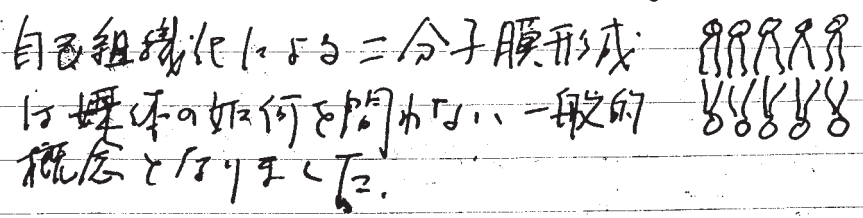 自己組織化による二分子膜形成
は媒体の如何を問わない、一般的
概念となりました.